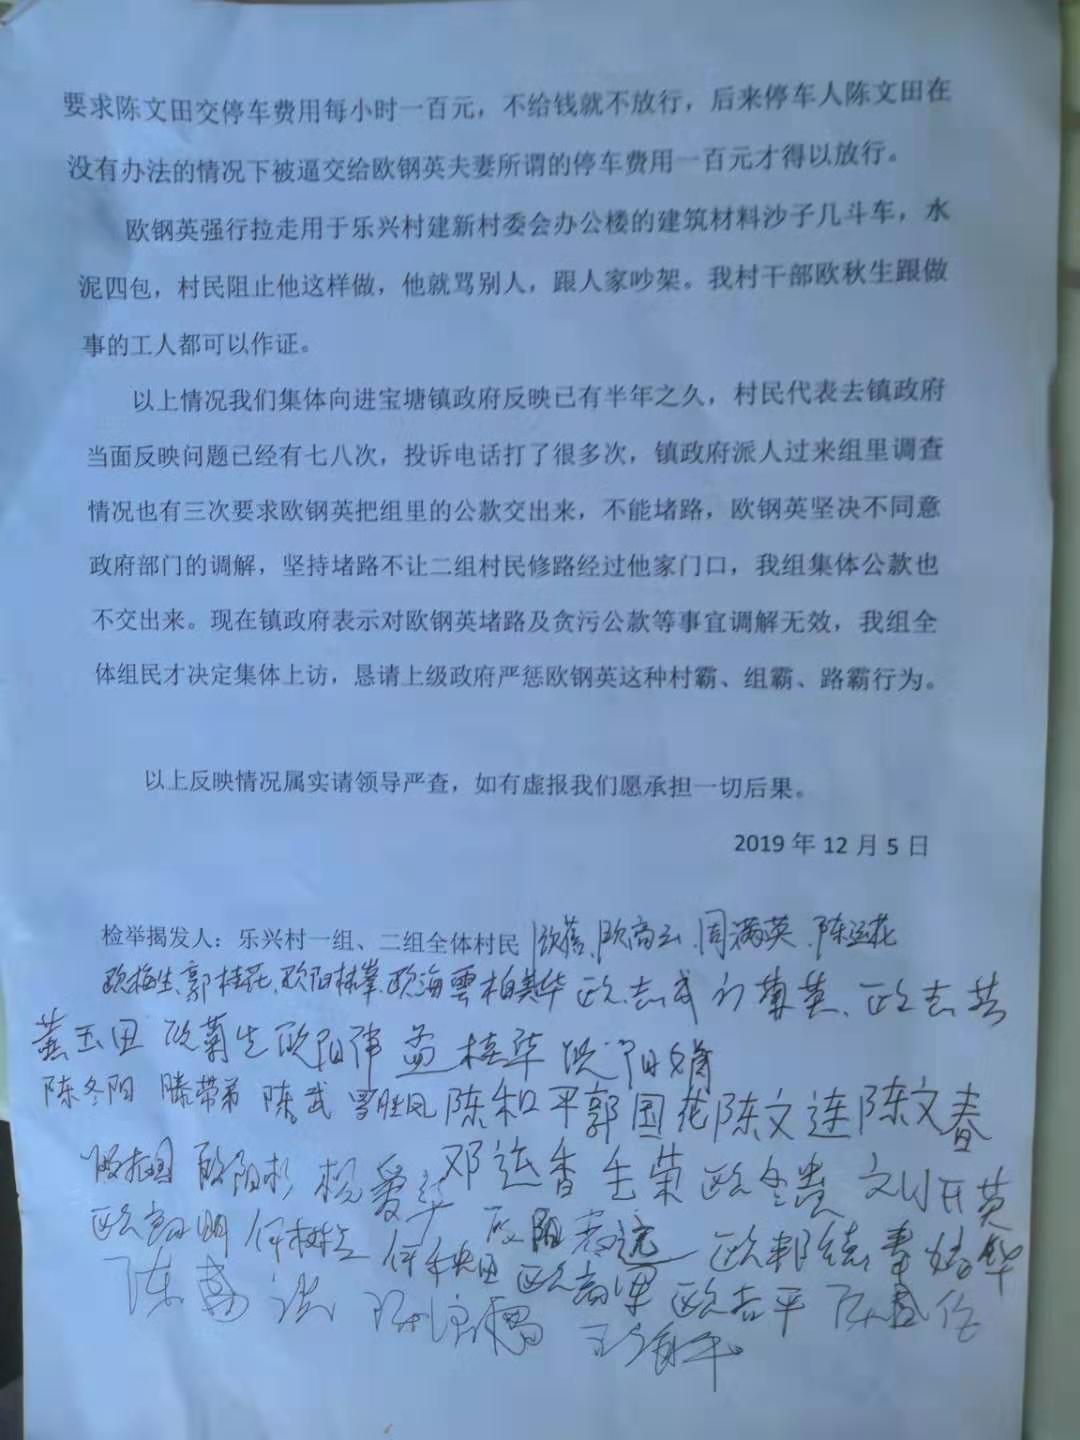 要求陈文田交停车费用每小时一百元，不给钱就不放行，后来停车人陈文田在
没有办法的情况下被逼交给欧钢英夫妻所谓的停车费用一百元才得以放行。
欧钢英强行拉走用于乐兴村建新村委会办公楼的建筑材料沙子几斗车，水
泥四包，村民阻止他这样做，他就骂别人，跟人家吵架。我村干部欧秋生跟做
事的工人都可以作证。
以上情况我们集体向进宝塘镇政府反映已有半年之久，村民代表去镇政府
当面反映问题已经有七八次，投诉电话打了很多次，镇政府派人过来组里调查
情况也有三次要求欧钢英把组里的公款交出来，不能堵路，欧钢英坚决不同意
政府部门的调解，坚持堵路不让二组村民修路经过他家门口，我组集体公款也
不交出来。现在镇政府表示对欧钢英堵路及贪污公款等事宜调解无效，我组全
体组民才决定集体上访，恳请上级政府严惩欧钢英这种村霸、组霸、路霸行为。
以上反映情况属实请领导严查，如有虚报我们愿承担一切后果。
2019 年 12 月 5 日
检举揭发人：乐兴村一组、二组全体村民 周满英、陈运花
欧梅生、郭桂花、欧阳林峯、欧海雲 柏美华 欧志成
黄玉田 欧菊生 欧阳伟 孟桂华
陈冬阳 滕带弟 陈武 罗胜凤 陈和平 郭国花 陈文连 陈文春
欧阳杉 杨爱华 邓运香 毛荣 欧冬贵 刘开英
何树立 欧邦德
欧吉平